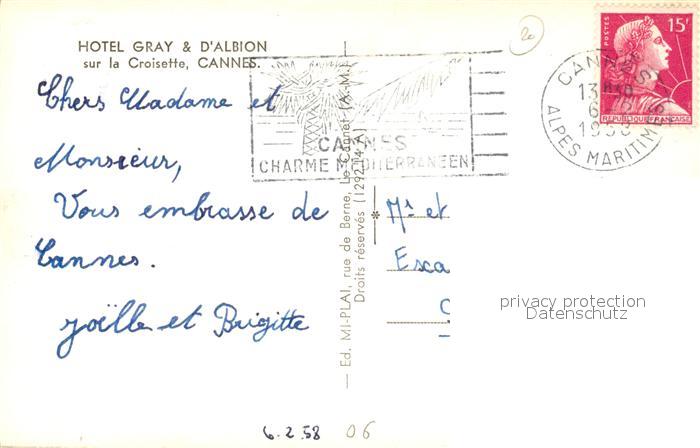 HOTEL GRAY & D'ALBION
sur la Croisette, CANNES.
Chers Madame et
Monsieur,
Vous embrasse de
Cannes.
Joëlle et Brigitte
CANNES
CHARME MEDITERRANEEN
Ed. MI-PLAI, rue de Berne, Le Cannet (A.-M.)
Droits réservés (129214 A)
20
POSTES
15F
REPUBLIQUE FRANÇAISE
CANNES
13H30
6
1958
ALPES MARITIMES
Mr et
Esca
C
privacy protection
Datenschutz
6.2.58 06